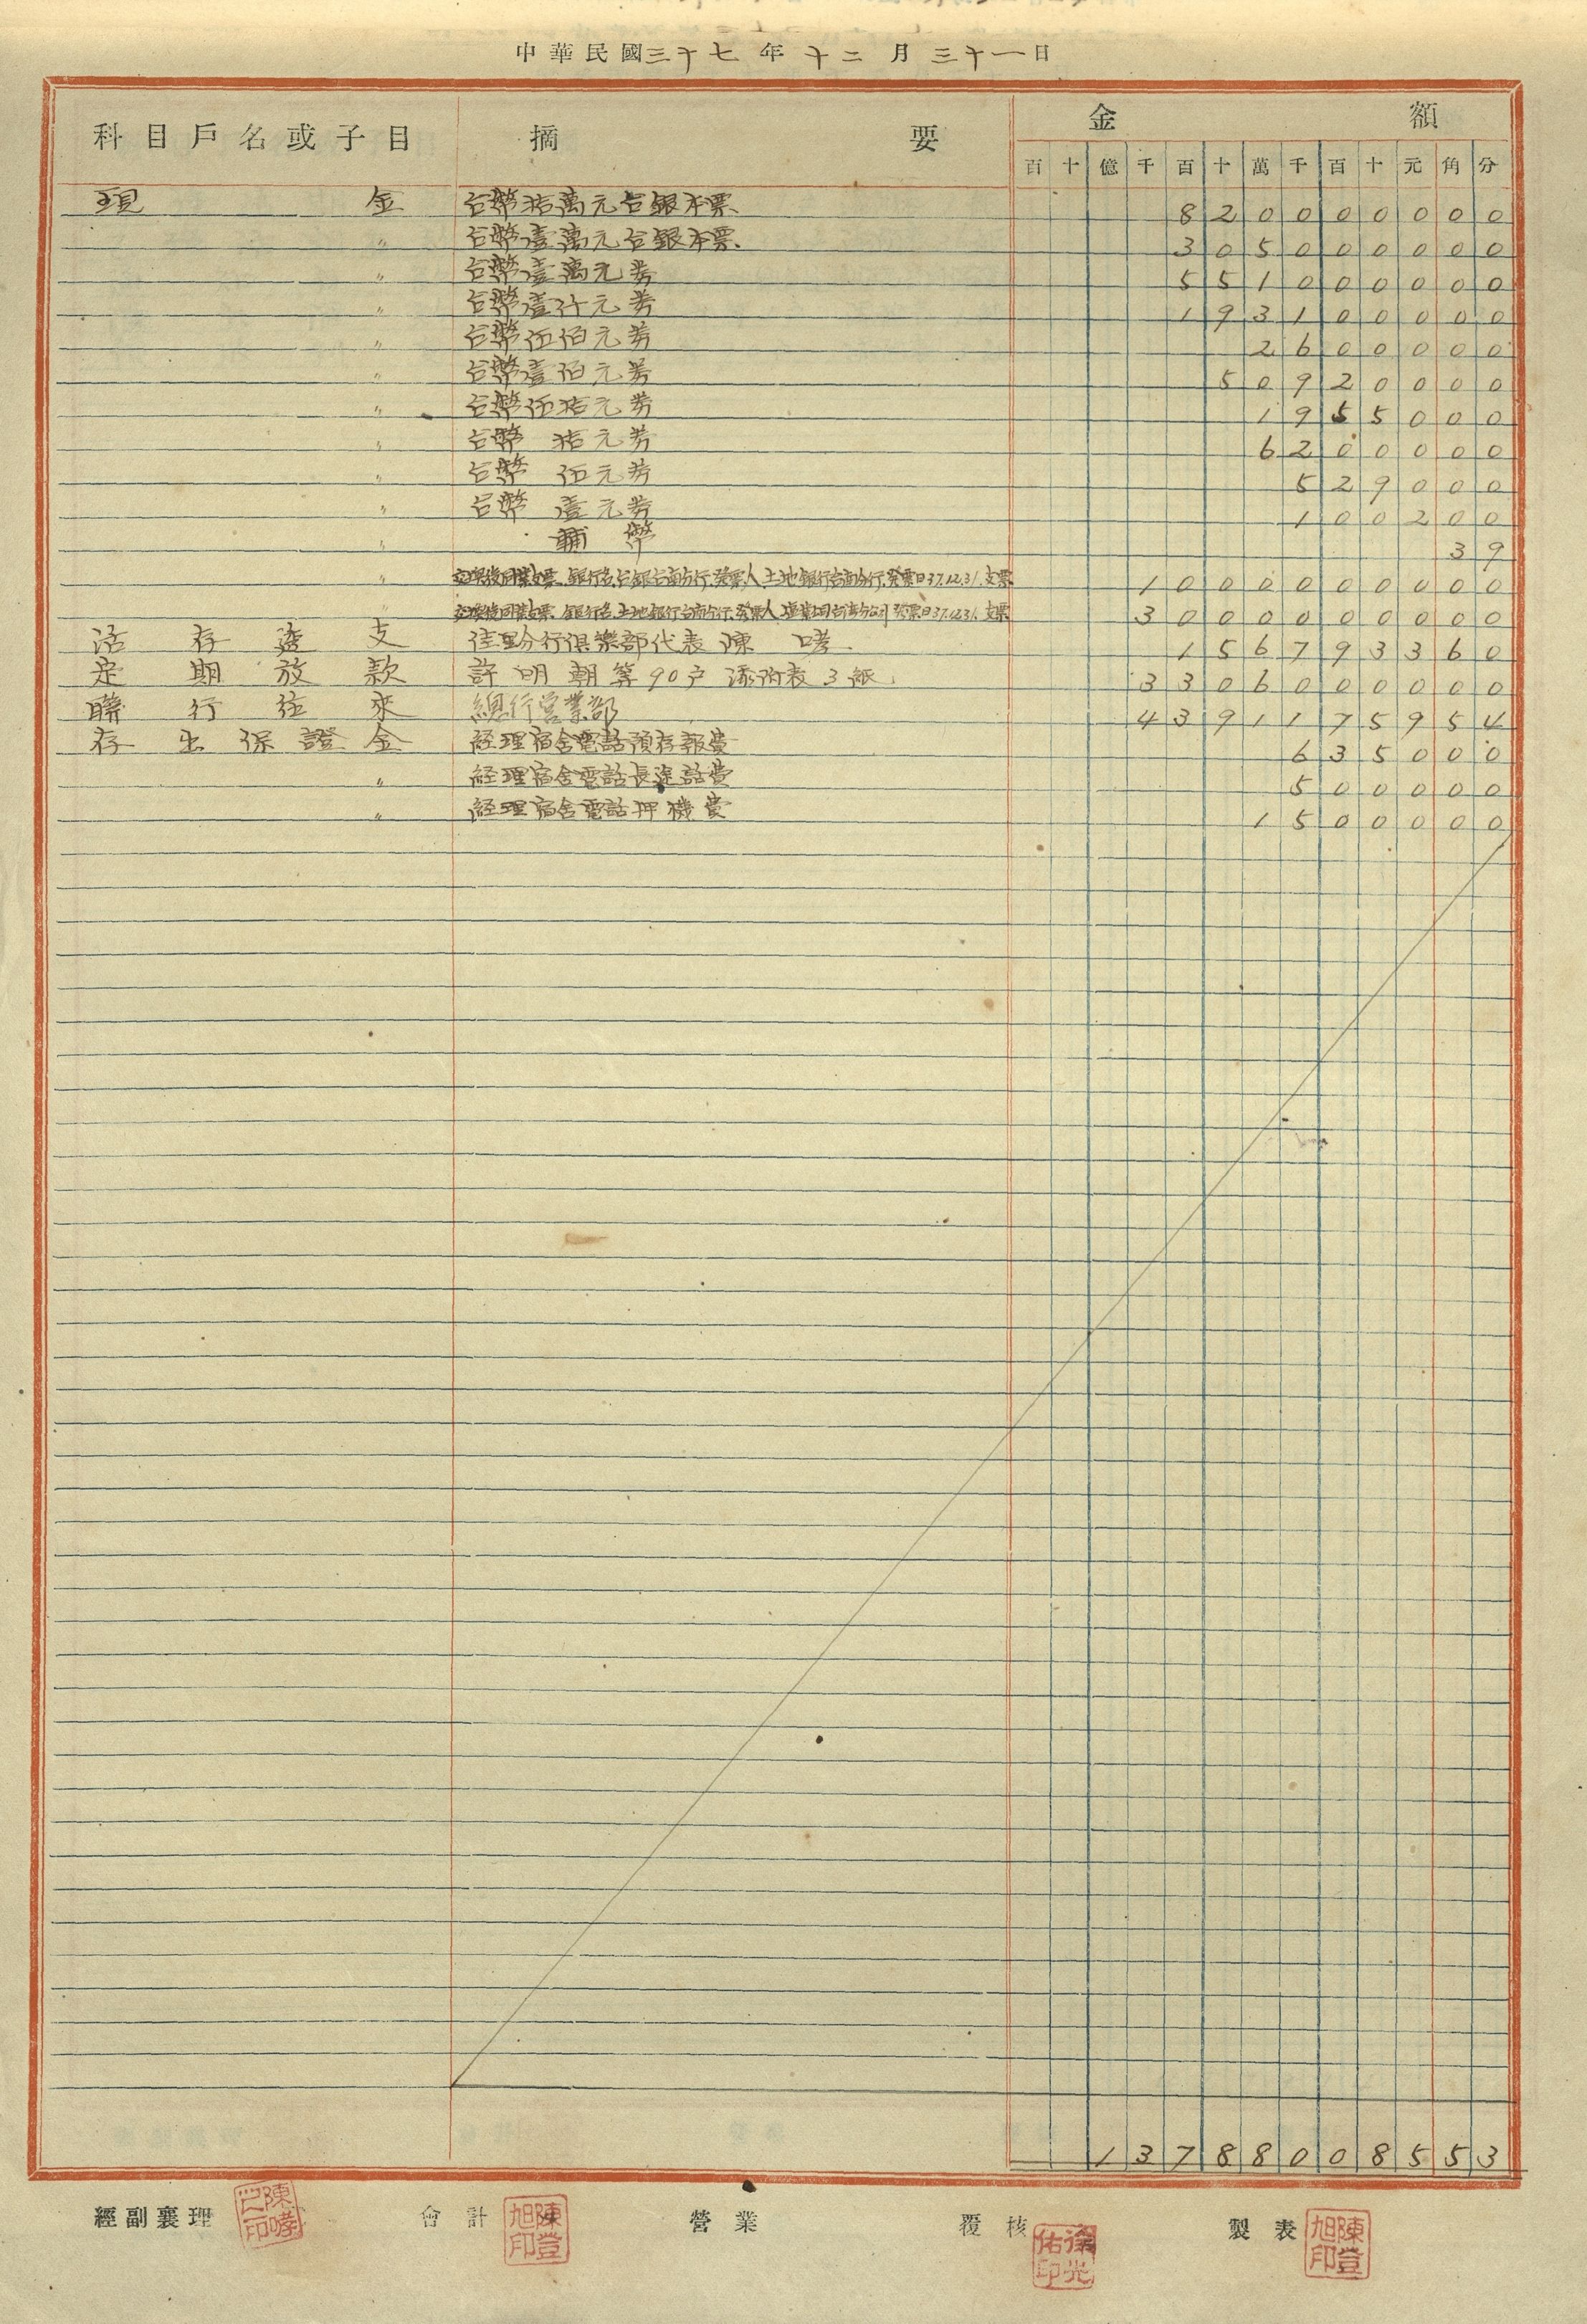 中華民國三十七年十二月三十一日
科目戶名或子目 摘要 金額
百十億千百十萬千百十元角分
現金 台幣拾萬元台銀本票 820000000
〃 台幣壹萬元台銀本票 305000000
〃 台幣壹萬元券 551000000
〃 台幣壹仟元券 193100000
〃 台幣伍佰元券 2600000
〃 台幣壹佰元券 50920000
〃 台幣伍拾元券 1955000
〃 台幣 拾元券 6200000
〃 台幣 伍元券 529000
〃 台幣 壹元券 100200
〃 輔幣 39
〃 交換後回籠支票 銀行名台銀台南分行.發票人土地銀行台南分行.發票日37.12.31.支票 1000000000
交換後回籠支票 銀行名土地銀行台南分行.發票人 台灣分公司 發票日37.12.31.支票 3000000000
活存透支 佳里分行俱樂部代表陳 哮 156793360
定期放款 許明朝等90戶 添附表3紙 3306000000
聯行往來 總行營業部 4391175954
存出保證金 經理宿舍電話預存報費 635000
〃 經理宿舍電話長途話費 500000
〃 經理宿舍電話押機費 1500000
13788008553
經副襄理 陳哮之印 會計 陳登旭印 營業 覆核 徐光佑印 製表 陳登旭印